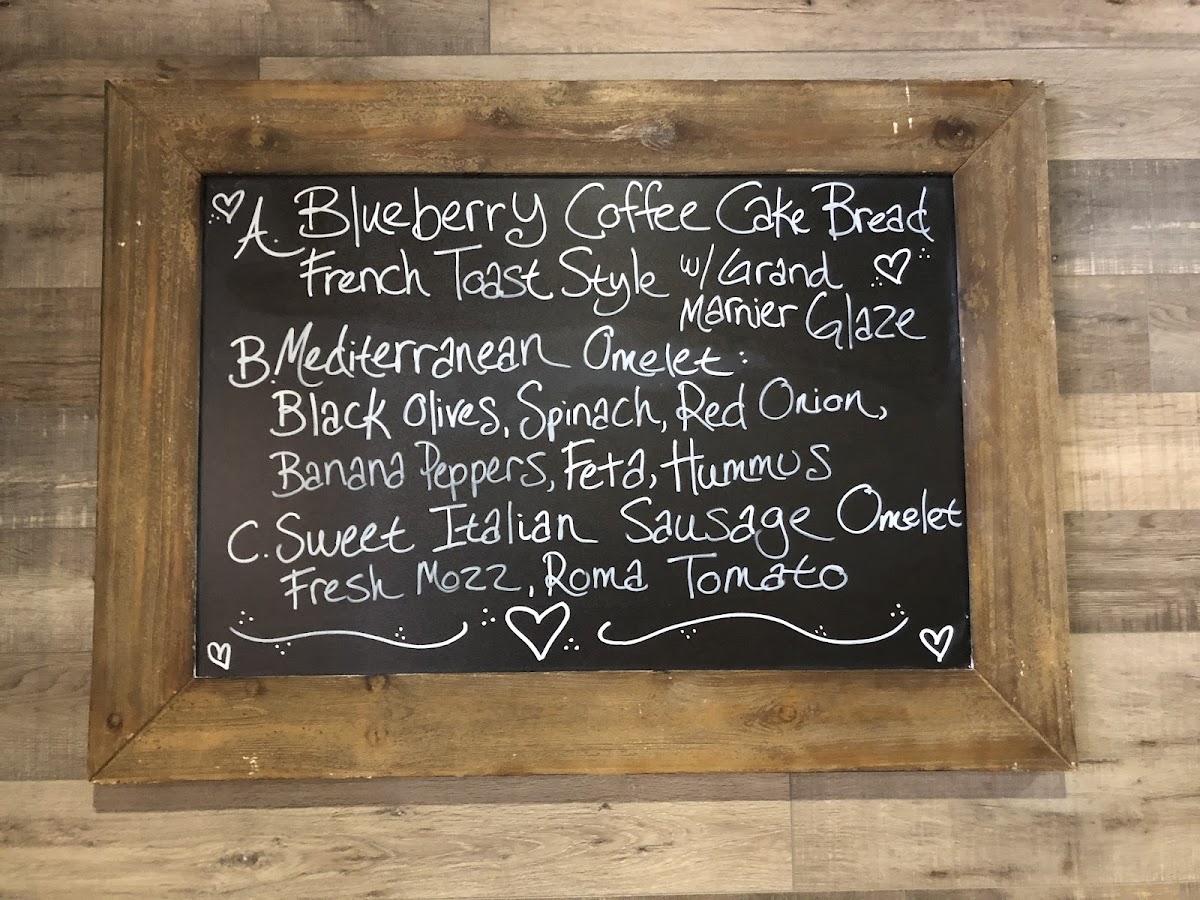 A. Blueberry Coffee Cake Bread
French Toast Style w/ Grand
Marnier Glaze
B. Mediterranean Omelet:
Black Olives, Spinach, Red Onion,
Banana Peppers, Feta, Hummus
C. Sweet Italian Sausage Omelet
Fresh Mozz, Roma Tomato